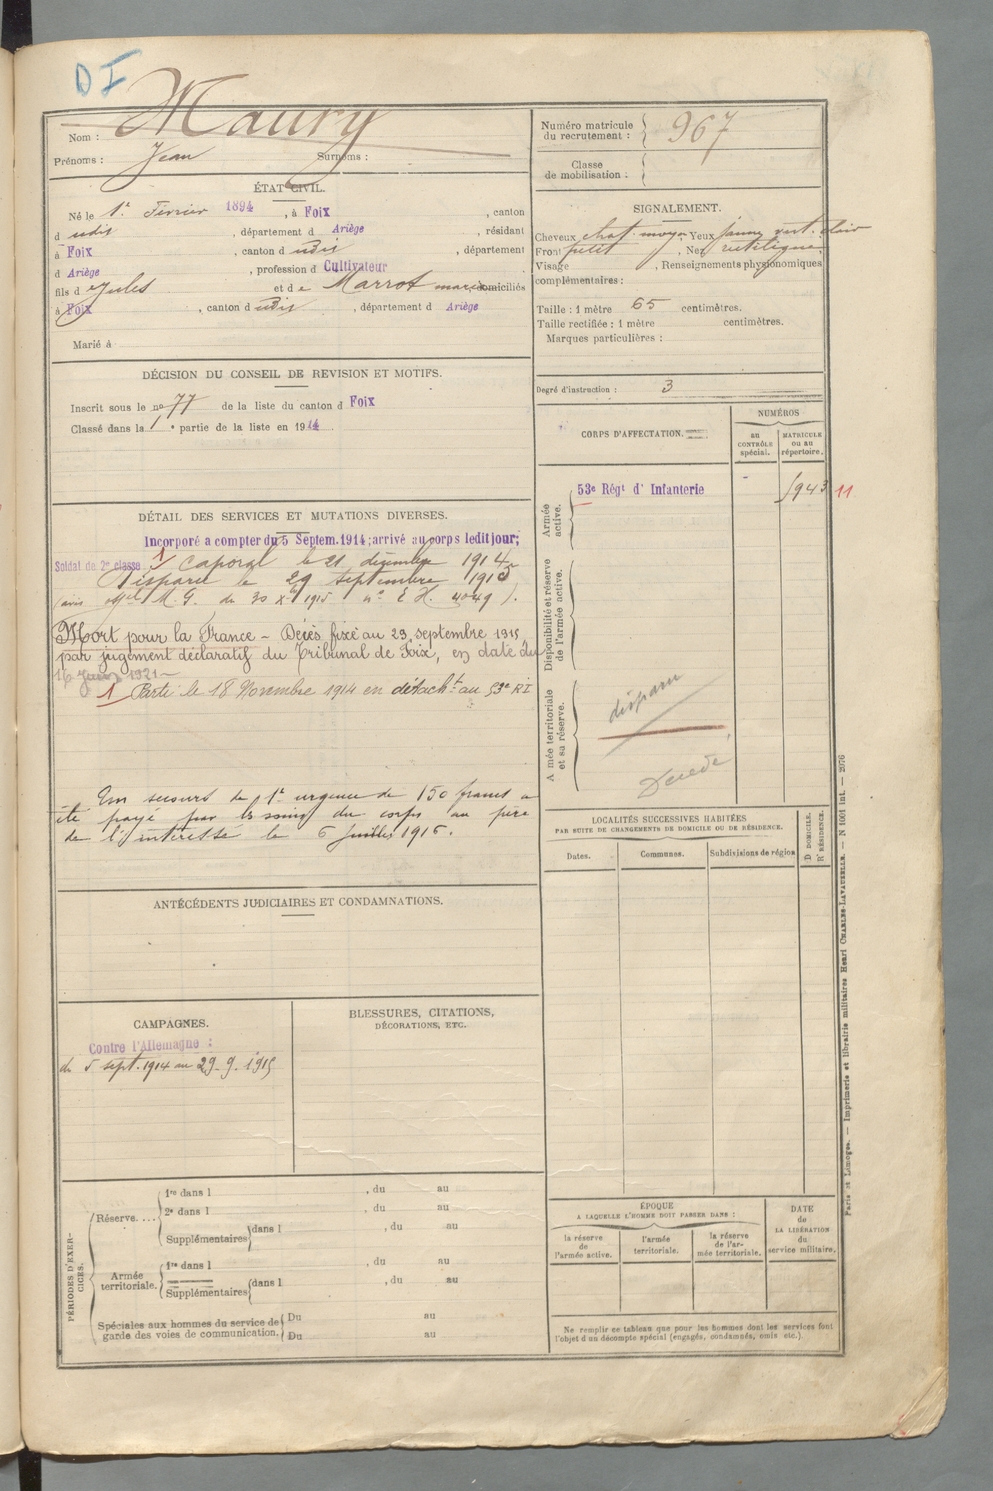 DI
Nom : Maury
Prénoms : Jean Surnoms :
Numéro matricule du recrutement : 967
Classe de mobilisation :
ÉTAT CIVIL.
Né le 1er Février 1894, à Foix, canton
d udit, département d Ariège, résidant
à Foix, canton d udit, département
d Ariège, profession d Cultivateur
fils d e Jules et d e Marrot marie domiciliés
à Foix, canton d udit, département d Ariège
Marié à
SIGNALEMENT.
Cheveux chat. moyen, Yeux jaune vert. clair
Front petit, Nez rectiligne
Visage , Renseignements physionomiques
complémentaires :
Taille : 1 mètre 65 centimètres.
Taille rectifiée : 1 mètre centimètres.
Marques particulières :
Degré d'instruction : 3
DÉCISION DU CONSEIL DE REVISION ET MOTIFS.
Inscrit sous le no 77 de la liste du canton d Foix
Classé dans la 1e partie de la liste en 1914
DÉTAIL DES SERVICES ET MUTATIONS DIVERSES.
Incorporé a compter du 5 Septem. 1914; arrivé au corps ledit jour;
Soldat de 2e classe 1/ Caporal le 21 décembre 1914
Disparu le 29 septembre 1915
(avis M. G. du 30 Xbre 1915 no E H. 4049).
Mort pour la France - Décès fixé au 29 septembre 1915
par jugement déclaratif du Tribunal de Foix, en date du
16 juin 1921 -
1 Parti le 18 Novembre 1914 en détacht au 53e RI
Un secours de 1e urgence de 150 francs a
été payé par les soins du corps au père
de l'intéressé le 6 juillet 1916.
CORPS D'AFFECTATION.
NUMÉROS
au CONTRÔLE spécial.
MATRICULE ou au répertoire.
Armée active.
53e Régt d' Infanterie
943 11
Disponibilité et réserve de l'armée active.
Armée territoriale et sa réserve.
disparu
Décédé
LOCALITÉS SUCCESSIVES HABITÉES
PAR SUITE DE CHANGEMENTS DE DOMICILE OU DE RÉSIDENCE.
Dates. Communes. Subdivisions de région D DOMICILE. R RÉSIDENCE.
ANTÉCÉDENTS JUDICIAIRES ET CONDAMNATIONS.
CAMPAGNES.
Contre l'Allemagne :
du 5 sept. 1914 au 29. 9. 1915
BLESSURES, CITATIONS,
DÉCORATIONS, ETC.
PÉRIODES D'EXERCICES.
Réserve....
1re dans l , du au
2e dans l , du au
Supplémentaires dans l , du au
Armée territoriale.
1re dans l , du au
Supplémentaires dans l , du au
Spéciales aux hommes du service de garde des voies de communication.
Du au
Du au
ÉPOQUE
A LAQUELLE L'HOMME DOIT PASSER DANS :
la réserve de l'armée active.
l'armée territoriale.
la réserve de l'armée territoriale.
DATE de LA LIBÉRATION du service militaire.
Ne remplir ce tableau que pour les hommes dont les services font
l'objet d'un décompte spécial (engagés, condamnés, omis etc.).
Paris et Limoges. — Imprimerie et librairie militaires Henri CHARLES-LAVAUZELLE. — N 1001 int. — 2076